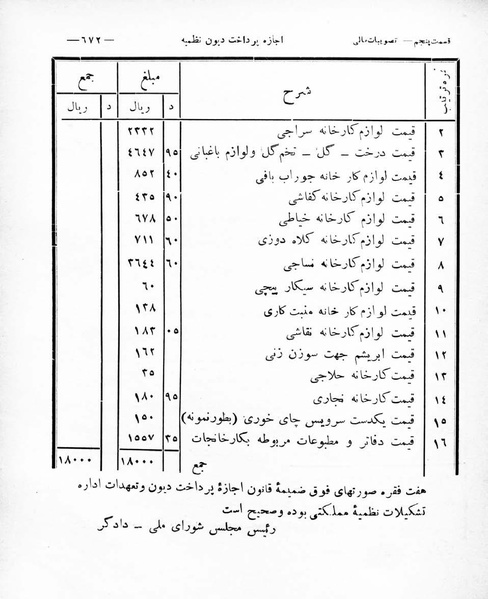 قسمت پنجم — تصویبات مالی اجازه پرداخت دیون نظمیه —٦٧٢—
نمره ترتیب شرح مبلغ جمع
د ریال د ریال
٢ قیمت لوازم کارخانه سراجی ٢٣٣٢
٣ قیمت درخت ـ گل ـ تخم گل ولوازم باغبانی ٩٥ ٤٦٤٧
٤ قیمت لوازم کار خانه جوراب بافی ٤٠ ٨٥٢
٥ قیمت لوازم کارخانه کفاشی ٩٠ ٤٣٥
٦ قیمت لوازم کارخانه خیاطی ٥٠ ٦٧٨
٧ قیمت لوازم کارخانه کلاه دوزی ٦٠ ٧١١
٨ قیمت لوازم کارخانه نساجی ٦٠ ٣٦٤٤
٩ قیمت لوازم کارخانه سیکار پیچی ٦٠
١٠ قیمت لوازم کار خانه منبت کاری ١٣٨
١١ قیمت لوازم کارخانه نقاشی ٠٥ ١٨٣
١٢ قیمت ابریشم جهت سوزن زنی ١٦٢
١٣ قیمت کارخانه حلاجی ٣٥
١٤ قیمت کارخانه نجاری ٩٥ ١٨٠
١٥ قیمت یکدست سرویس چای خوری (بطورنمونه) ١٥٠
١٦ قیمت دفاتر و مطبوعات مربوطه بکارخانجات ٣٥ ١٥٥٧
جمع ١٨٠٠٠ ١٨٠٠٠
هفت فقره صورتهای فوق ضمیمۀ قانون اجازۀ پرداخت دیون وتعهدات اداره
تشکیلات نظمیۀ مملکتی بوده وصحیح است
رئیس مجلس شورای ملی ـ دادگر